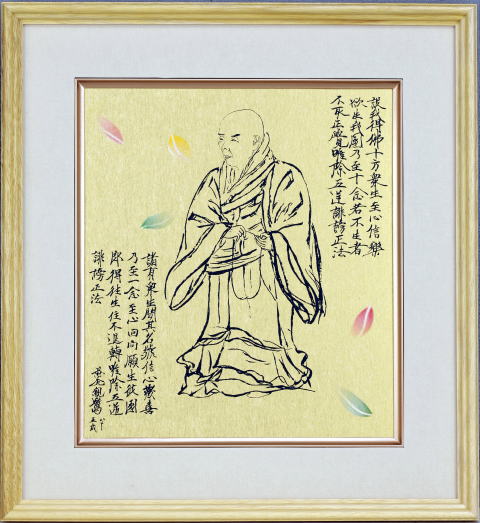 設我得佛十方衆生至心信樂
欲生我國乃至十念若不生者
不取正覺唯除五逆誹謗正法
諸有衆生聞其名號信心歡喜
乃至一念至心回向願生彼國
即得往生住不退轉唯除五逆
誹謗正法
愚禿親鸞
八十
五歳